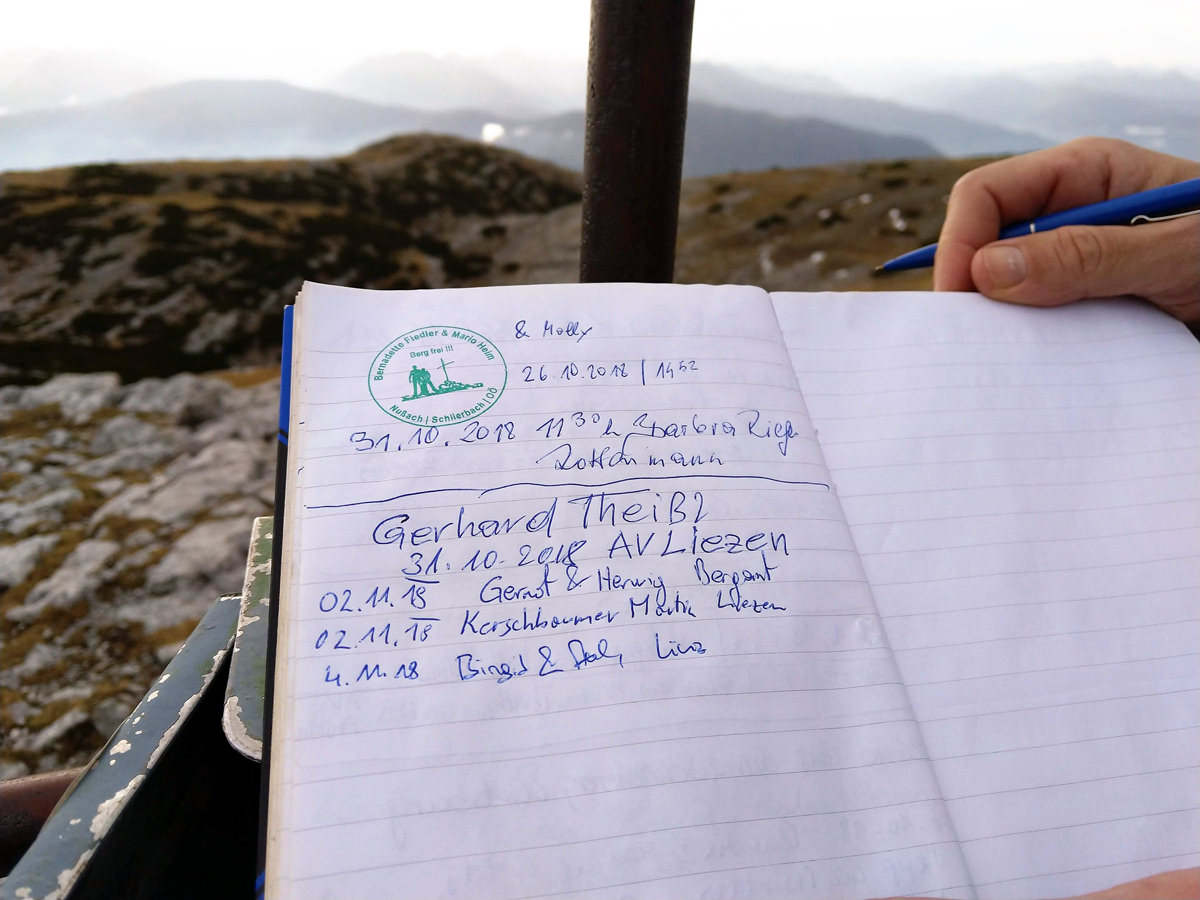 Bernadette Fiedler & Mario Helm
Berg frei !!!
Nußach | Schlierbach | OÖ
& Molly
26.10.2018 | 14⁵²
31.10.2018 11³⁰h Barbara
Rottenmann
Gerhard Theißl
31.10.2018 AV Liezen
02.11.18 Gernot & Herwig Bergamt
02.11.18 Kerschbaumer Martin Liezen
4.11.18 Birgit & Linz